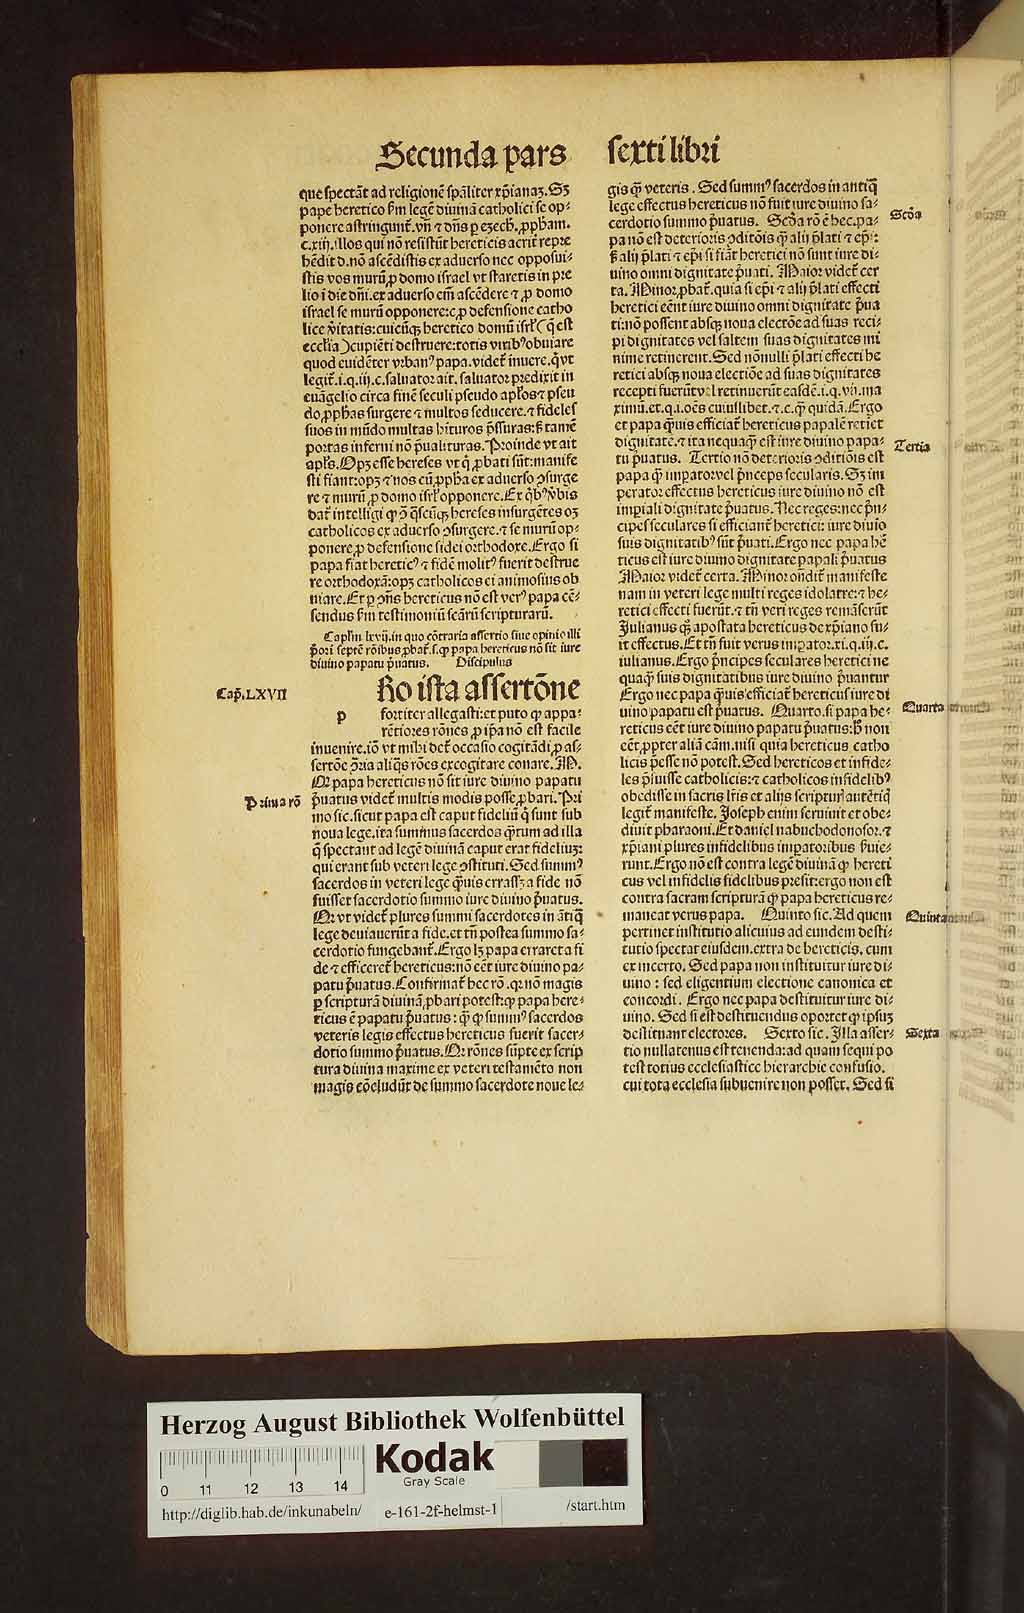 Secunda pars sexti libri
que spectāt ad religionē spāliter xp̄ianaʒ. Sʒ
pape heretico ẜm legē diuinā catholici se op-
ponere astringunt᷑. vn̄ ⁊ dn̄s p eʒech̄. ꝓph̄am.
c.xiij. illos qui nō resistūt hereticis acrit᷑ repre
hēdit d. nō ascēdistis ex aduerso nec opposui-
stis vos murū ꝓ domo israel vt staretis in pre
lio ī die dn̄i. ex aduerso em̄ ascēdere ⁊ ꝓ domo
israel se murū opponere: ē ꝓ defensione catho
lice v̄itatis: cuicūqʒ heretico domū isrl̄ (q̄ est
eccl̄ia) cupiēti destruere: totis virib⁹ obuiare
quod euidēter vrban⁹ papa. videt᷑ inuere. q̄ vt
legit᷑. i. q. iij. c. saluator ait. saluator predixit in
euāgelio circa finē seculi pseudo apl̄os ⁊ pseu
do ꝓph̄as surgere ⁊ multos seducere. ⁊ fideles
suos in mūdo multas h̄ituros p̄ssuras: ẜ tamē
portas inferni nō p̄ualituras. Proinde vt ait
apl̄s. Opʒ esse hereses vt q̄ ꝓbati sūt: manife
sti fiant: opʒ ⁊ nos cū ꝓph̄a ex aduerso ꝯsurge
re ⁊ murū ꝓ domo isrl̄ opponere. Ex q̄b⁹ v̄bis
dat᷑ intelligi ꝙ ꝯ q̄scūqʒ hereses insurgētes oʒ
catholicos ex aduerso ꝯsurgere. ⁊ se murū op-
ponere ꝓ defensione fidei orthodoxe. Ergo si
papa fiat heretic⁹ ⁊ fidē molit⁹ fuerit destrue
re orthodoxā: opʒ catholicos ei animosius ob
uiare. Et p ꝯn̄s hereticus nō est ver⁹ papa cē-
sendus ẜm testimoniū sc̄arū scripturarū.
Capl̄m lxvij. in quo cōtraria assertio siue opinio illi
p̄ori septē rōibus ꝓbat᷑. s. ꝙ papa hereticus nō sit iure
diuino papatu p̄uatus. Discipulus
Cap̄. LXVII
p Ro ista assertōne
fortiter allegasti: et puto ꝙ appa-
rētiores rōnes ꝓ ip̄a nō est facile
inuenire. iō vt mihi det᷑ occasio cogitādi ꝓ as-
sertōe ꝯria aliq̄s rōes excogitare conare. M.
Qr papa hereticus nō sit iure diuino papatu
Prima rō
p̄uatus videt᷑ multis modis posse ꝓbari. Pri
mo sic. sicut papa est caput fideliū q̄ sunt sub
noua lege. ita summus sacerdos q̄tum ad illa
q̄ spectant ad legē diuinā caput erat fideliuʒ:
qui erant sub veteri lege ꝯstituti. Sed summ⁹
sacerdos in veteri lege q̄uis errassʒ a fide nō
fuisset sacerdotio summo iure diuino p̄uatus.
Qr vt videt᷑ plures summi sacerdotes in ātiq̄
lege deuiauerūt a fide. et tn̄ postea summo sa-
cerdotio fungebant᷑. Ergo lʒ papa erraret a fi
de ⁊ efficeret᷑ hereticus: nō eēt iure diuino pa-
patu p̄uatus. Confirmat᷑ hec rō. q. nō magis
p scripturā diuinā ꝓbari potest: ꝙ papa here-
ticus ē papatu p̄uatus: q̄ ꝙ summ⁹ sacerdos
veteris legis effectus hereticus fuerit sacer-
dotio summo p̄uatus. Qr rōnes sūpte ex scrip
tura diuina maxime ex veteri testamēto non
magis cōcludūt de summo sacerdote noue le-
gis q̄ veteris. Sed summ⁹ sacerdos in antiq̄
lege effectus hereticus nō fuit iure diuino sa-
Scd̄a
cerdotio summo p̄uatus. Scd̄a rō ē hec. pa-
pa nō est deterioris ꝯditōis q̄ alij p̄lati ⁊ ep̄i:
ẜ alij p̄lati ⁊ ep̄i si fiāt heretici nō sunt iure di-
uino omni dignitate p̄uati. Maior videt᷑ cer
ta. Minor ꝓbat᷑. quia si ep̄i ⁊ alij p̄lati effecti
heretici eēnt iure diuino omni dignitate p̄ua
ti: nō possent absqʒ noua electōe ad suas reci-
pi dignitates vel saltem suas dignitates mi
nime retinerent. Sed nōnulli p̄lati effecti he
retici absqʒ noua electiōe ad suas dignitates
recepti fuerūt vel retinuerūt easdē. i. q. vij. ma
ximū. et. q. i. oēs cuiuslibet. ⁊. c. q̄ quidā. Ergo
et papa q̄uis efficiat᷑ hereticus papalē retiet
dignitatē. ⁊ ita nequaq̄ est iure diuino papa-
Tertia
tu p̄uatus. Tertio nō deterioris ꝯditiōis est
papa q̄ imꝑator vel p̄nceps secularis. Sʒ im
perator effectus hereticus iure diuino nō est
imꝑiali dignitate p̄uatus. Nec reges: nec p̄n-
cipes seculares si efficiant᷑ heretici: iure diuio
suis dignitatib⁹ sūt p̄uati. Ergo nec papa hē
ticus est iure diuino dignitate papali p̄uatus
Maior videt᷑ certa. Minor on̄dit᷑ manifeste
nam in veteri lege multi reges idolatre: ⁊ he-
retici effecti fuerūt. ⁊ tn̄ veri reges remāserūt
Julianus qʒ apostata hereticus de xp̄iano fu-
it effectus. Et tn̄ fuit verus imꝑator. xi. q. iij. c.
iulianus. Ergo p̄ncipes seculares heretici ne
quaq̄ suis dignitatibus iure diuino p̄uantur
Ergo nec papa q̄uis efficiat᷑ hereticus iure di
Quarta
uino papatu est p̄uatus. Quarto. si papa he-
reticus eēt iure diuino papatu p̄uatus: h̄ non
eēt ꝓpter aliā cām. nisi quia hereticus catho
licis p̄esse nō potest. Sed hereticos et infide-
les p̄fuisse catholicis: ⁊ catholicos infidelib⁹
obedisse in sacris lr̄is et alijs scriptur᷑ autētiq̄
legit᷑ manifeste. Joseph enim seruiuit et obe-
diuit pharaoni. Et daniel nabuchodonosor. ⁊
xp̄iani plures infidelibus imꝑatoribus ẜuie-
runt. Ergo nō est contra legē diuinā ꝙ hereti
cus vel infidelis fidelibus presit: ergo non est
contra sacram scripturā ꝙ papa hereticus re-
Quinta
maneat verus papa. Quinto sic. Ad quem
pertinet institutio alicuius ad eundem desti-
tutio spectat eiusdem. extra de hereticis. cum
ex incerto. Sed papa non instituitur iure di-
uino: sed eligentium electione canonica et
concordi. Ergo nec papa destituitur iure di-
uino. Sed si est destituendus oportet ꝙ ipsuʒ
Sexta
destituant electores. Sexto sic. Illa asser-
tio nullatenus est tenenda: ad quam sequi po
test totius ecclesiastice hierarchie confusio.
cui tota ecclesia subuenire non posset. Sed si
Herzog August Bibliothek Wolfenbüttel
Kodak
Gray Scale
0 11 12 13 14
http://diglib.hab.de/inkunabeln/ e-161-2f-helmst-1 /start.htm